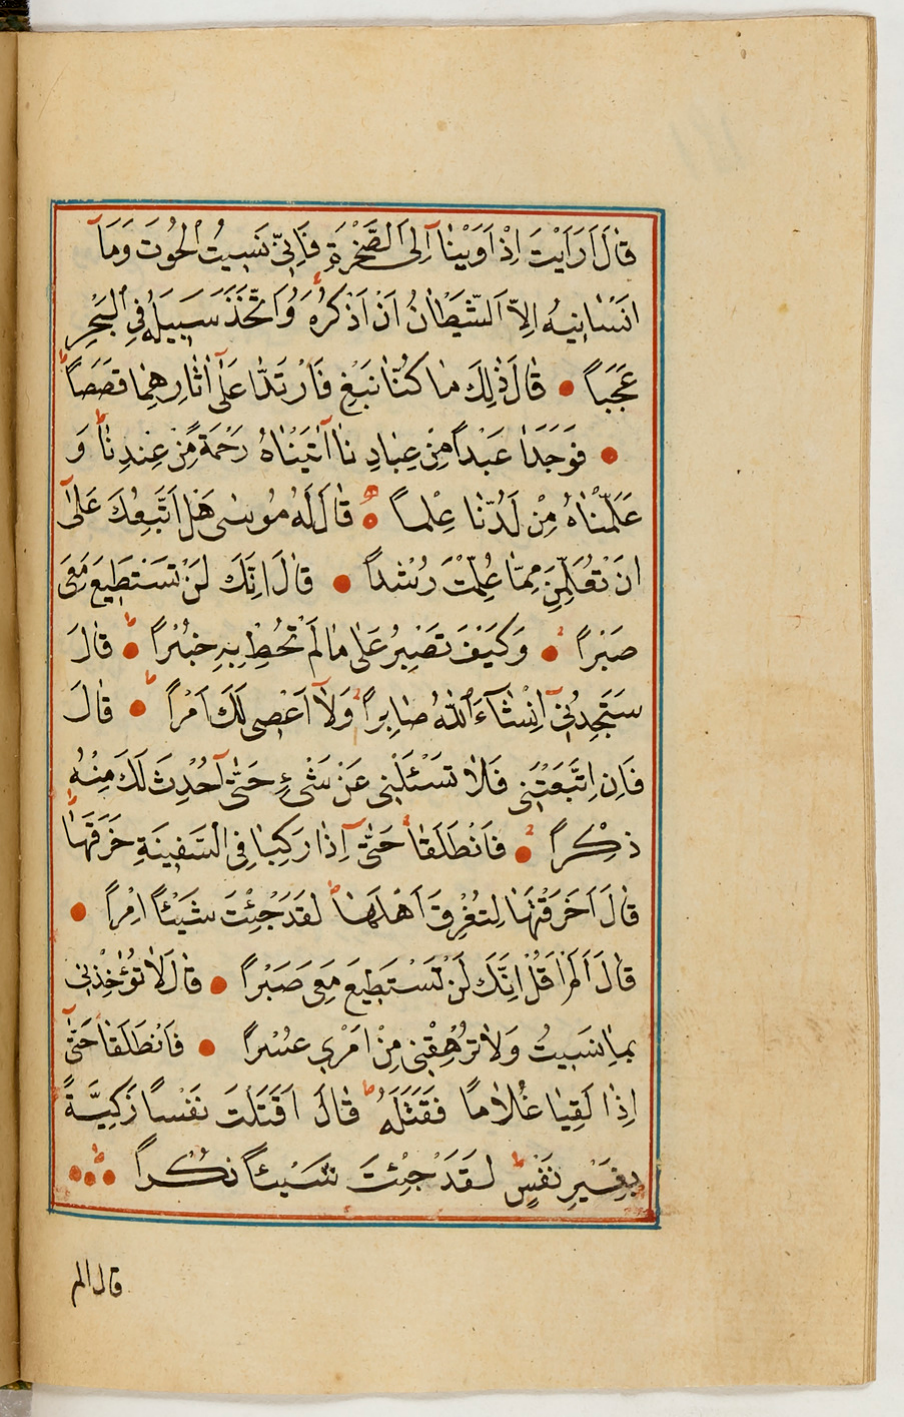 قَالَ اَرَاَيْتَ اِذْ اَوَيْنَآ اِلَى الصَّخْرَةِ فَاِنّ۪ى نَس۪يتُ الْحُوتَ وَمَآ
اَنْسَان۪يهُ اِلَّا الشَّيْطَانُ اَنْ اَذْكُرَهُ وَاتَّخَذَ سَب۪يلَهُ فِى الْبَحْرِ
عَجَبًا ● قَالَ ذٰلِكَ مَا كُنَّا نَبْغِ فَارْتَدَّا عَلٰٓى اٰثَارِهِمَا قَصَصًا
● فَوَجَدَا عَبْدًا مِنْ عِبَادِنَا اٰتَيْنَاهُ رَحْمَةً مِنْ عِنْدِنَا وَ
عَلَّمْنَاهُ مِنْ لَدُنَّا عِلْمًا ● قَالَ لَهُ مُوسٰى هَلْ اَتَّبِعُكَ عَلٰٓى
اَنْ تُعَلِّمَنِ مِمَّا عُلِّمْتَ رُشْدًا ● قَالَ اِنَّكَ لَنْ تَسْتَط۪يعَ مَعِىَ
صَبْرًا ● وَكَيْفَ تَصْبِرُ عَلٰى مَا لَمْ تُحِطْ بِه۪ خُبْرًا ● قَالَ
سَتَجِدُن۪ٓى اِنْ شَآءَ اللّٰهُ صَابِرًا وَلَآ اَعْص۪ى لَكَ اَمْرًا ● قَالَ
فَاِنِ اتَّبَعْتَن۪ى فَلَا تَسْئَلْن۪ى عَنْ شَىْءٍ حَتّٰٓى اُحْدِثَ لَكَ مِنْهُ
ذِكْرًا ● فَانْطَلَقَا حَتّٰٓى اِذَا رَكِبَا فِى السَّف۪ينَةِ خَرَقَهَا
قَالَ اَخَرَقْتَهَا لِتُغْرِقَ اَهْلَهَا لَقَدْ جِئْتَ شَيْئًا اِمْرًا ●
قَالَ اَلَمْ اَقُلْ اِنَّكَ لَنْ تَسْتَط۪يعَ مَعِىَ صَبْرًا ● قَالَ لَا تُؤَاخِذْن۪ى
بِمَا نَس۪يتُ وَلَا تُرْهِقْن۪ى مِنْ اَمْر۪ى عُسْرًا ● فَانْطَلَقَا حَتّٰٓى
اِذَا لَقِيَا غُلَامًا فَقَتَلَهُ قَالَ اَقَتَلْتَ نَفْسًا زَكِيَّةً
بِغَيْرِ نَفْسٍ لَقَدْ جِئْتَ شَيْئًا نُكْرًا ●●●
قال الم